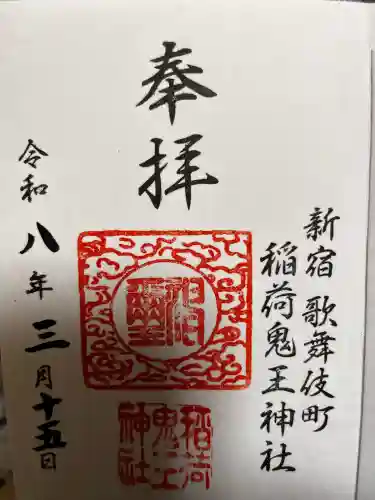 新宿歌舞伎町
稲荷鬼王神社
奉拝
神璽
稲荷
鬼王
神社
令和八年三月十五日